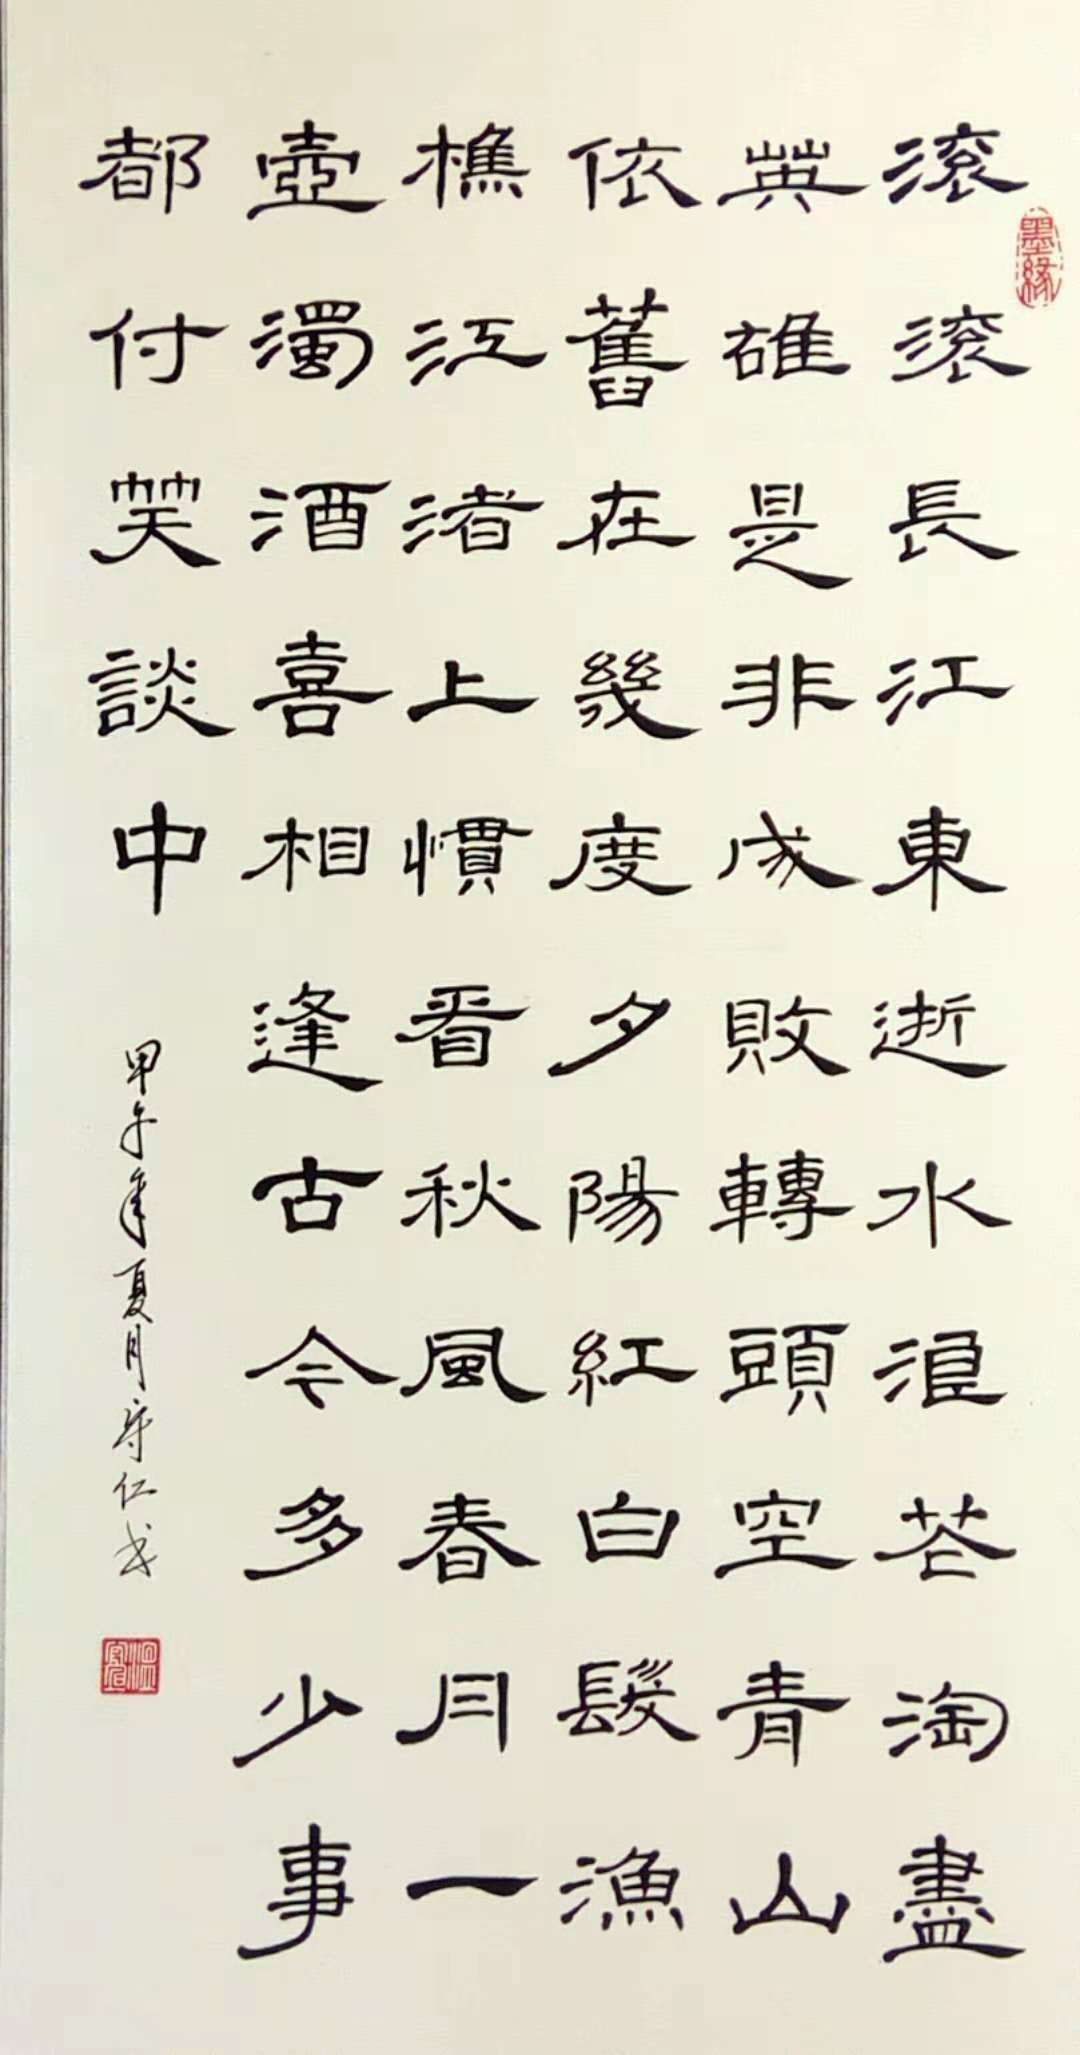 滚滚長江東逝水浪花淘盡
英雄是非成敗轉頭空青山
依舊在幾度夕陽紅白髮漁
樵江渚上慣看秋風春月一
壺濁酒喜相逢古今多少事
都付笑談中
甲午年夏月守仁书
墨緣